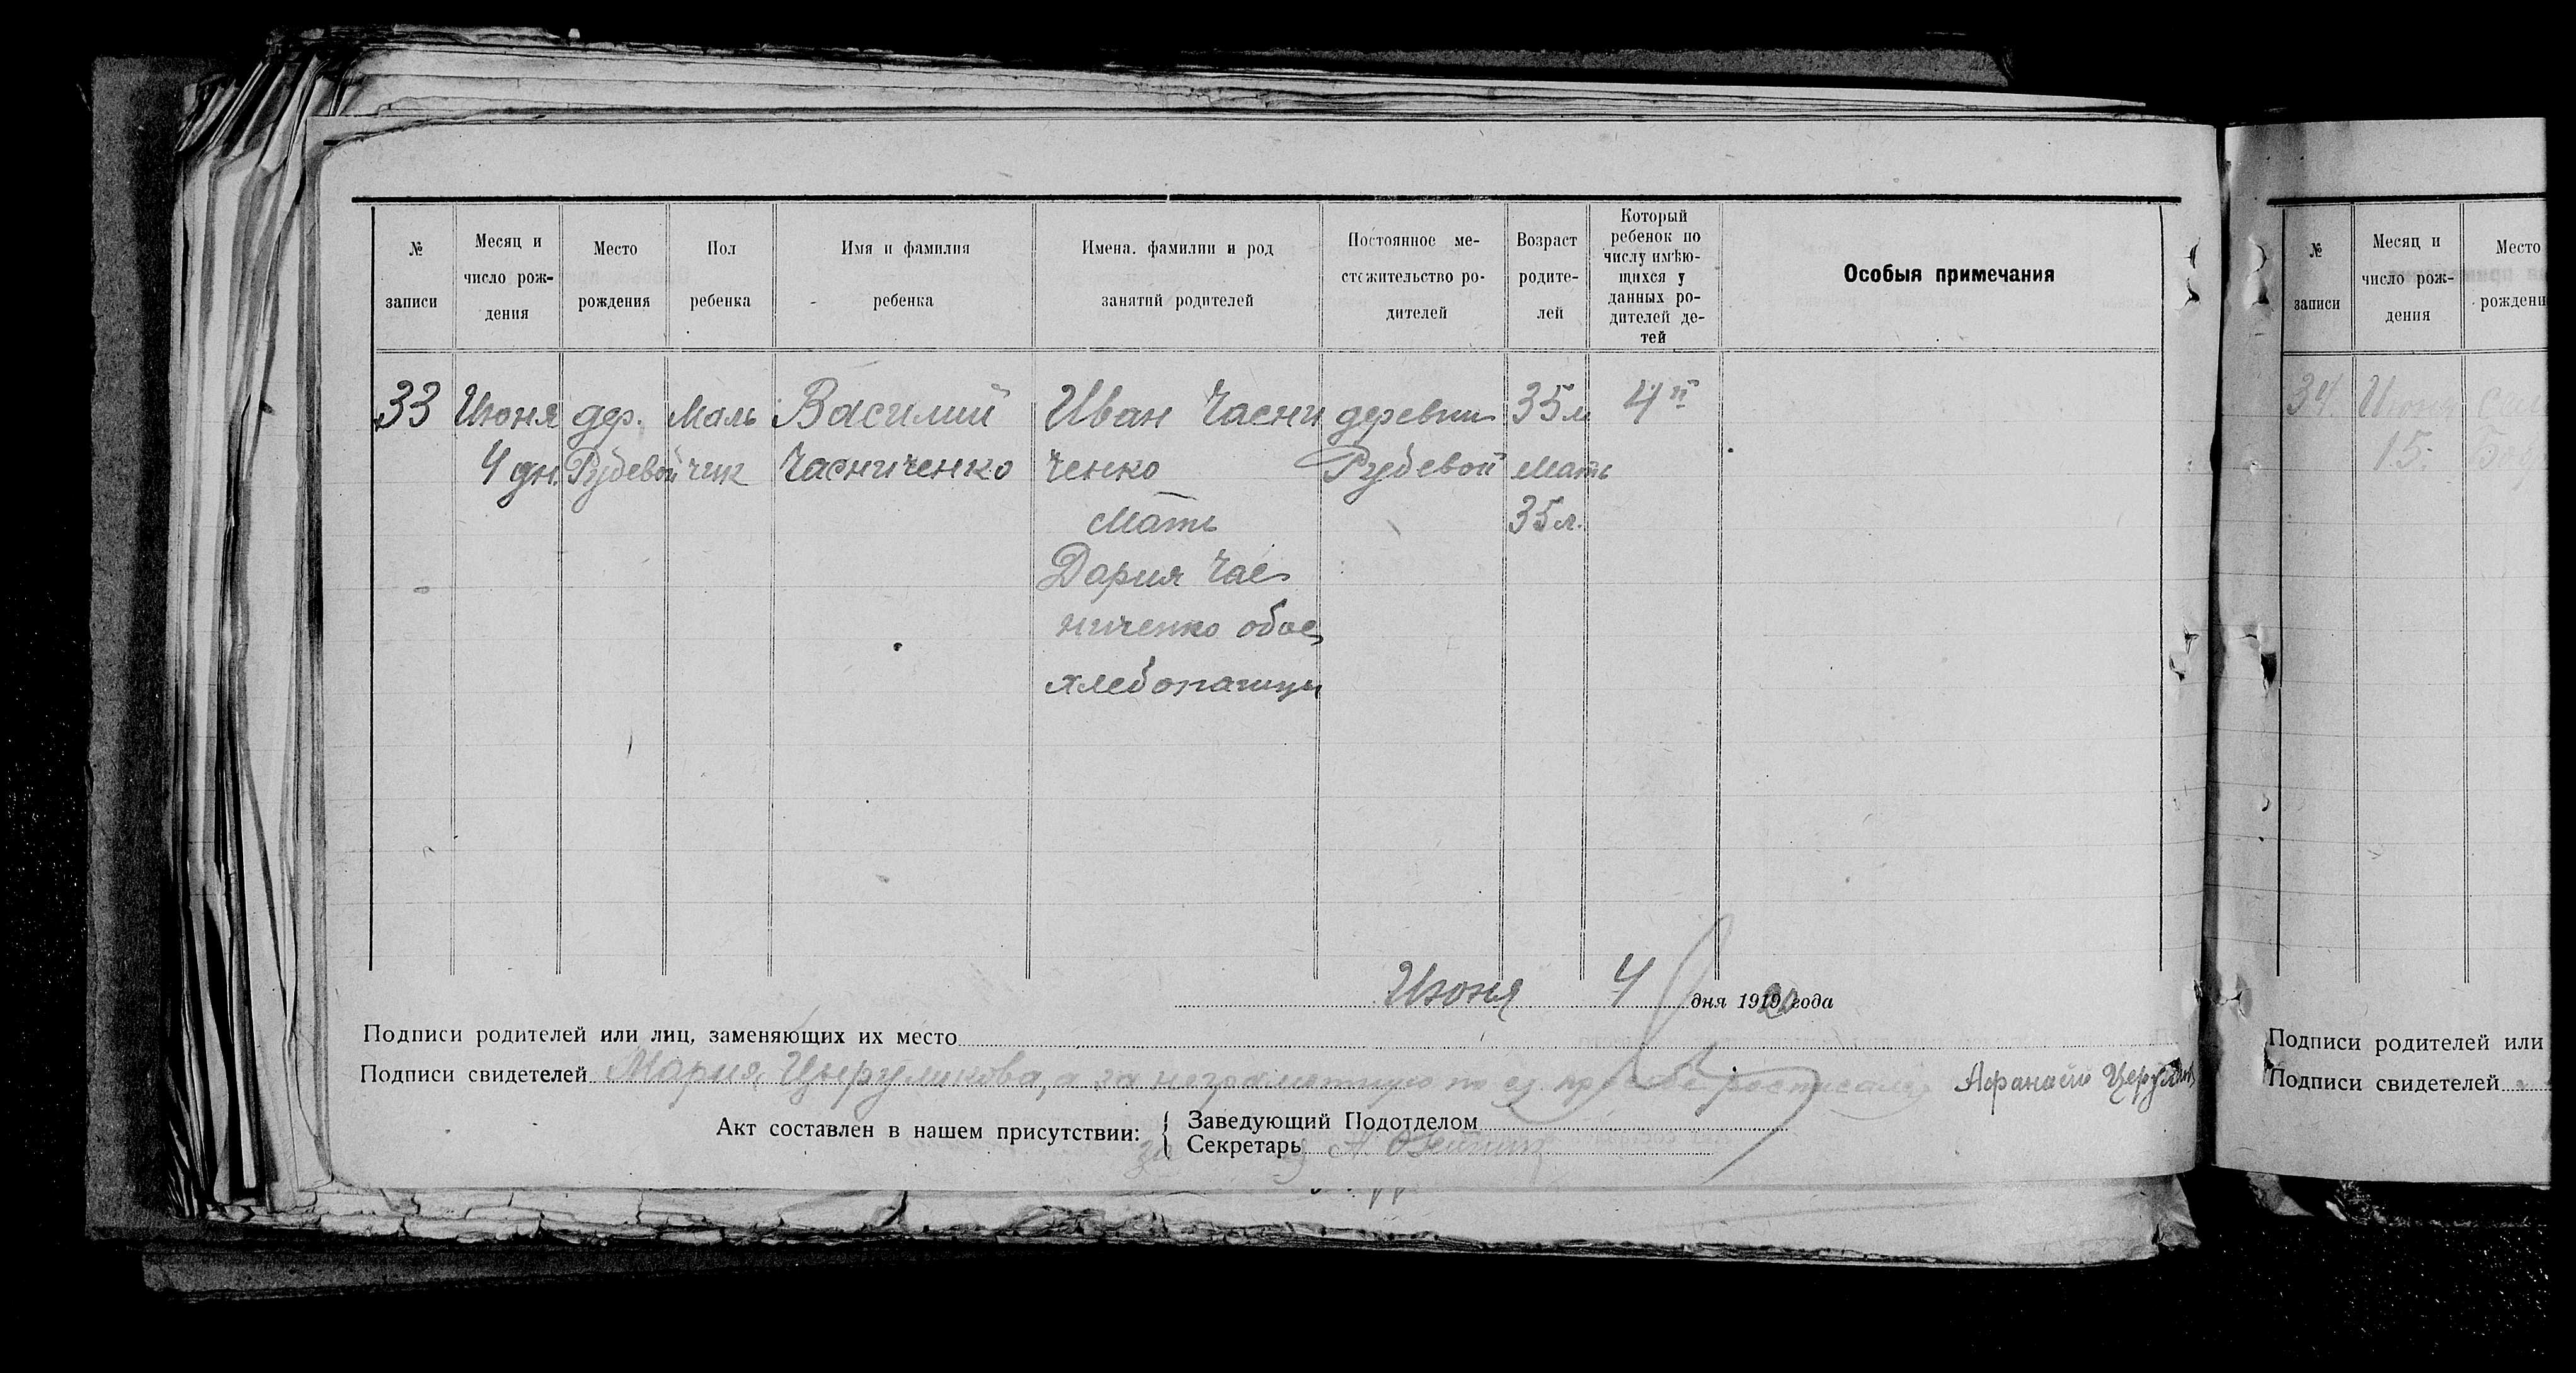 № записи
Месяц и число рождения
Место рождения
Пол ребенка
Имя и фамилия ребенка
Имена, фамилии и род занятий родителей
Постоянное местожительство родителей
Возраст родителей
Который ребенок по числу имѣющихся у данных родителей детей
Особыя примечания
33 Июня дер. Маль Василий Иван Часни деревни 35 л 4й
4 дн. Рубевой чик Часниченко ченко Рубевой Мать
Мать 35 л.
Дария Час
ниченко обое
хлебопашцы
Июня 4 дня 1919 20 года
Подписи родителей или лиц, заменяющих их место
Подписи свидетелей Мария Цыруликова, а за неграмотную по ея просьбе росписался Афанасий
Акт составлен в нашем присутствии: { Заведующий Подотделом
Секретарь А.
№ записи
Месяц и число рождения
Место рождени
34 Июня
15.
Подписи родителей или
Подписи свидетелей